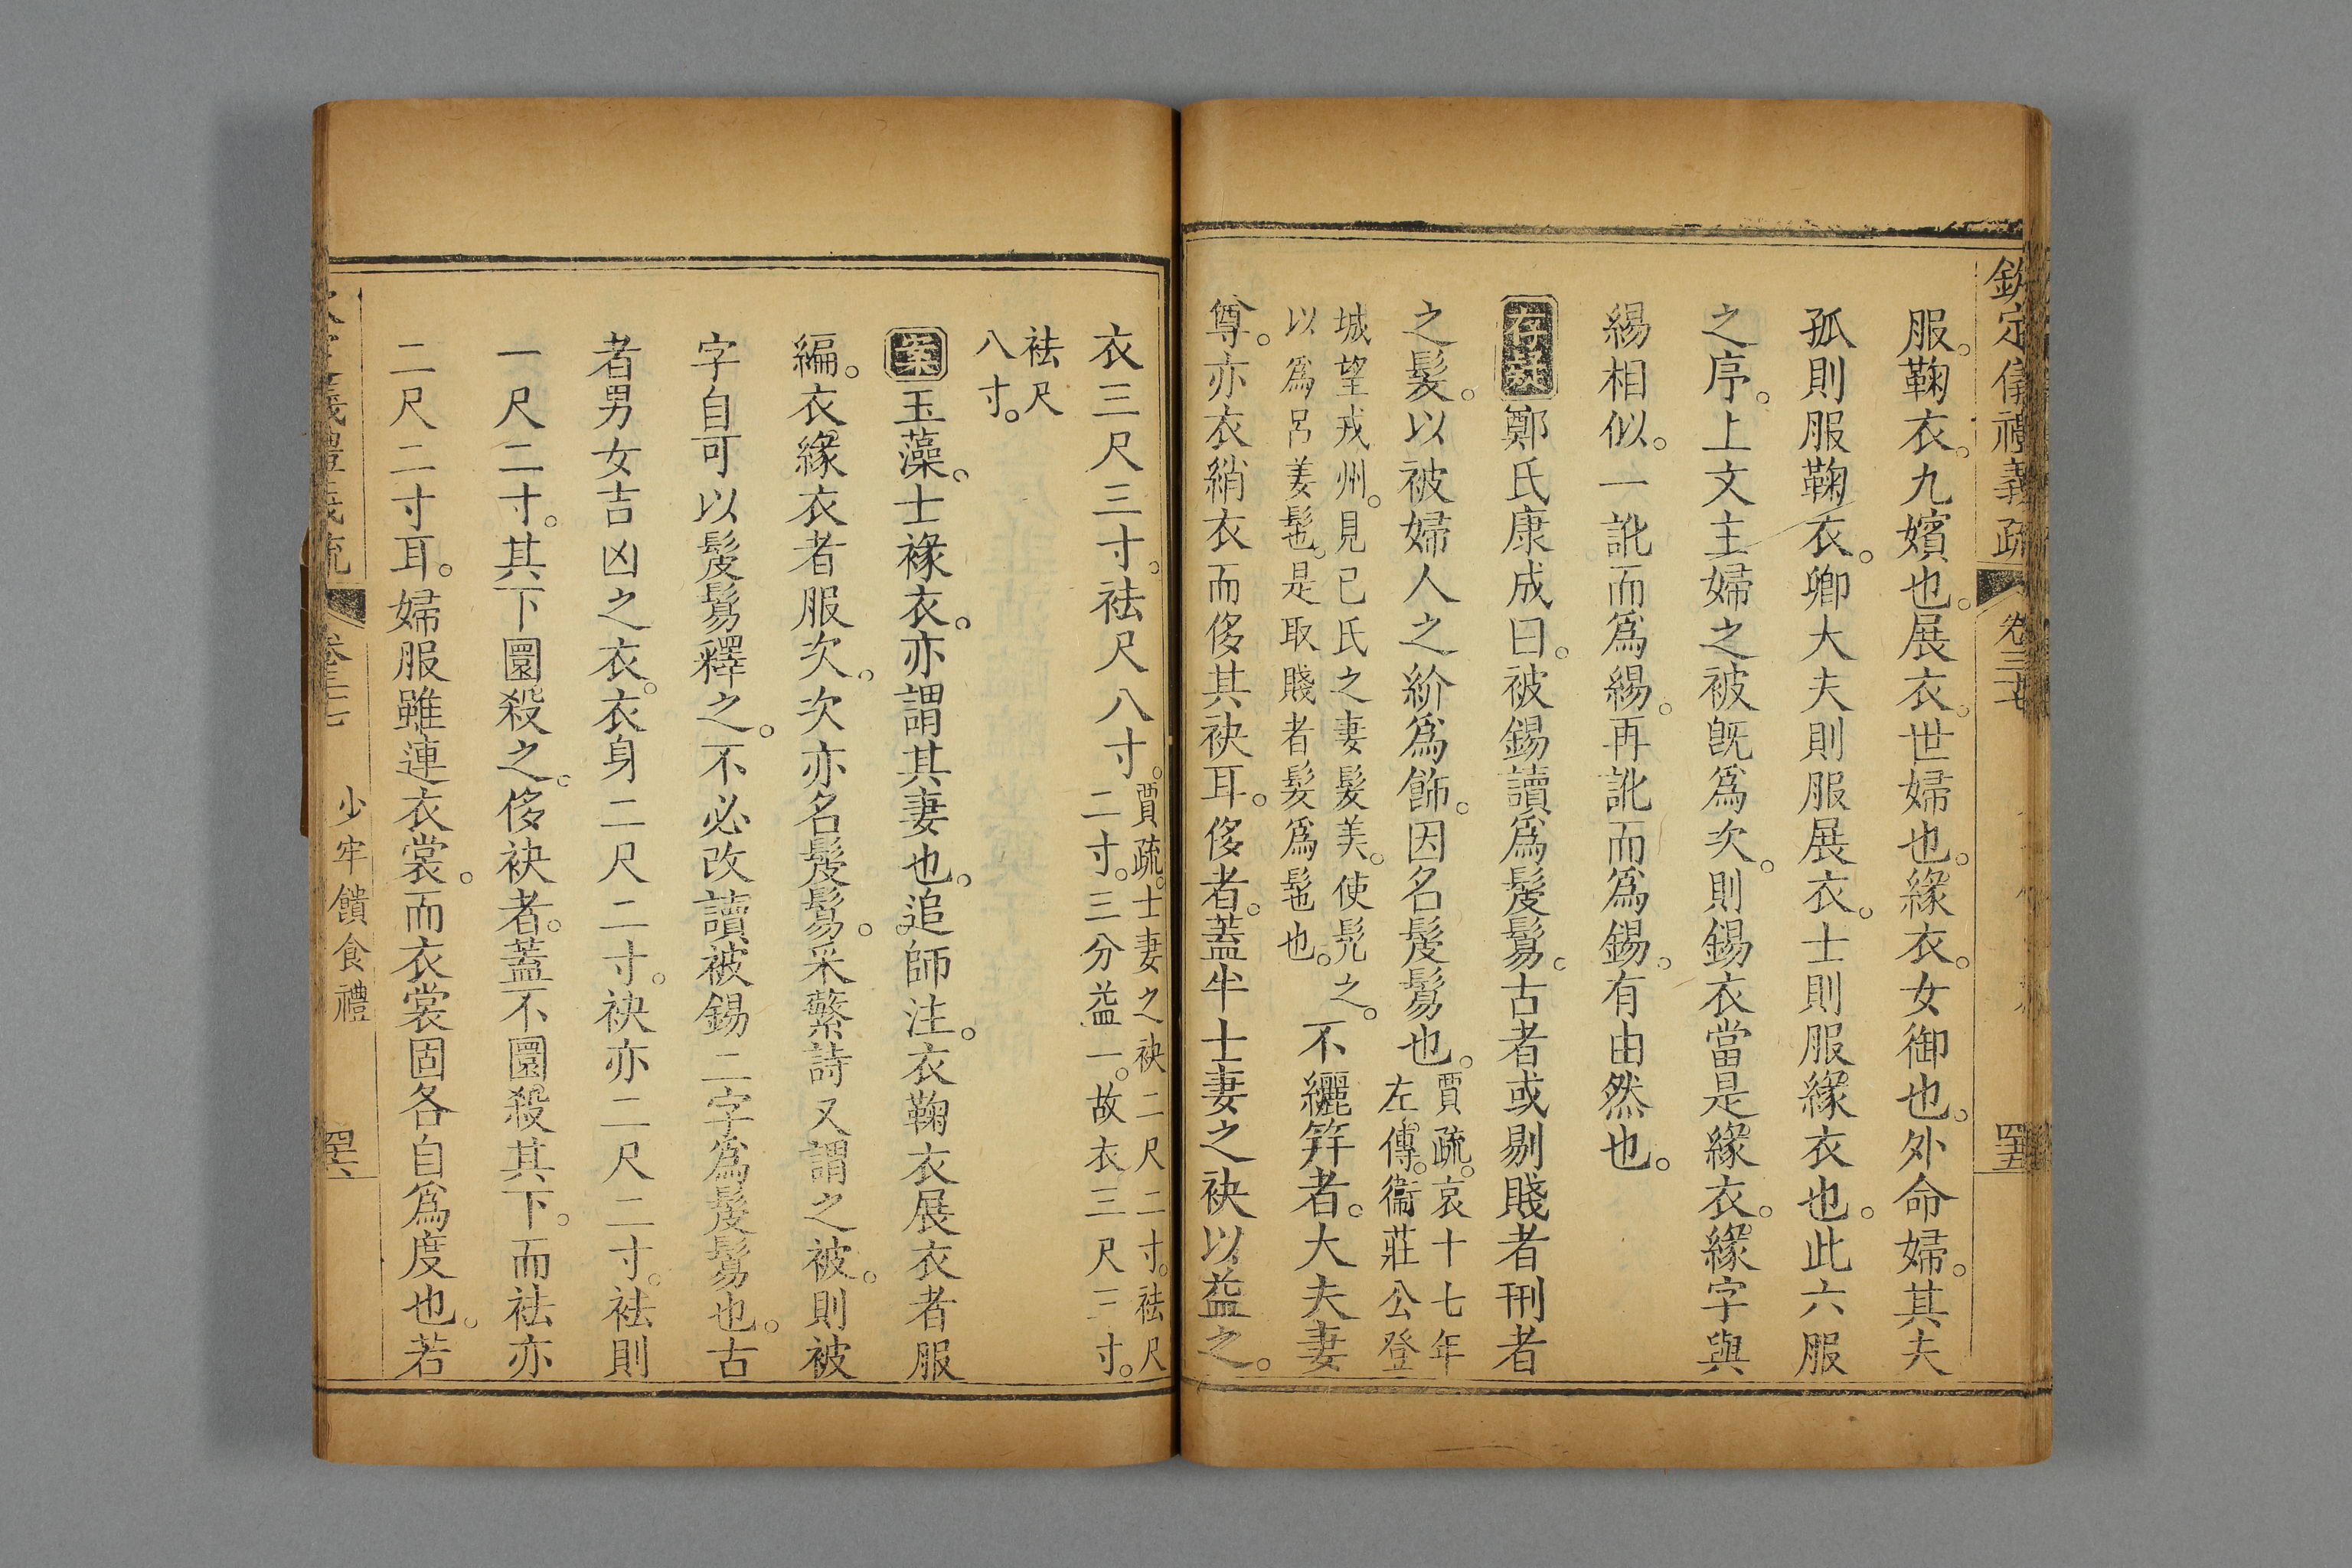 欽定儀禮義疏 卷三十七 四十五
服。鞠衣。九嬪也。展衣。世婦也。緣衣。女御也。外命婦。其夫
孤則服鞠衣。卿大夫則服展衣。士則服緣衣也。此六服
之序。上文主婦之被旣爲次。則錫衣當是緣衣。緣字與
緆相似。一訛而爲緆。再訛而爲錫。有由然也。
存誤 鄭氏康成曰。被錫讀爲髲鬄。古者或剔賤者刑者
之髮。以被婦人之紒爲飾。因名髲鬄也。賈疏。哀十七年
左傳。衞莊公登
城望戎州。見已氏之妻髮美。使髡之。
以爲呂姜髢。是取賤者髮爲髢也。不纚笄者。大夫妻
尊。亦衣綃衣而侈其袂耳。侈者。蓋半士妻之袂以益之。
衣三尺三寸。袪尺八寸。賈疏。士妻之袂二尺二寸。袪尺
二寸。三分益一。故衣三尺三寸。
袪尺
八寸。
案 玉藻。士褖衣。亦謂其妻也。追師注。衣鞠衣展衣者服
編。衣緣衣者服次。次亦名髲鬄。采蘩詩又謂之被。則被
字自可以髲鬄釋之。不必改讀被錫二字爲髲鬄也。古
者男女吉凶之衣。衣身二尺二寸。袂亦二尺二寸。袪則
一尺二寸。其下圜殺之。侈袂者。蓋不圜殺其下。而袪亦
二尺二寸耳。婦服雖連衣裳。而衣裳固各自爲度也。若
義禮義疏 卷三十七 少牢饋食禮 四十六